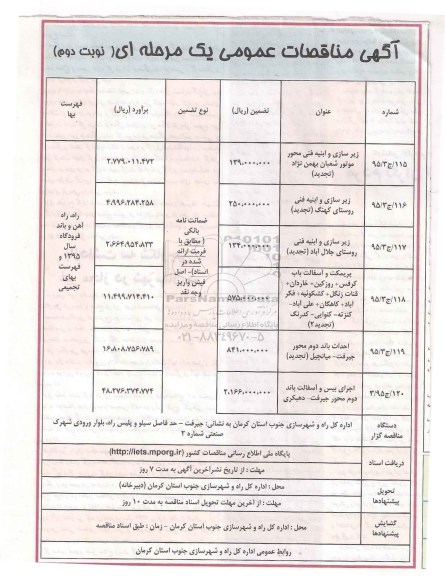 آگهی مناقصات عمومی یک مرحله ای( نوبت دوم)
شماره
عنوان
تضمین (ریال)
نوع تضمین
برآورد (ریال)
فهرست
بها
۹۵/۳/ج/۱۱۵
زیر سازی و ابنیه فنی محور
موتور شعبان بهمن نژاد
(تجدید)
۱۳۹،۰۰۰،۰۰۰
۲،۷۷۹،۰۱۱،۴۷۲
۹۵/۳/ج/۱۱۶
زیر سازی و ابنیه فنی
روستای کهنگ (تجدید)
۲۵۰،۰۰۰،۰۰۰
۴،۹۹۶،۲۸۴،۲۵۸
۹۵/۳/ج/۱۱۷
زیر سازی و ابنیه فنی
روستای جلال آباد (تجدید)
۱۳۴،۰۰۰،۰۰۰
۲،۶۶۴،۹۵۴،۸۳۳
۹۵/۳/ج/۱۱۸
پریمکت و آسفالت باب
کرفس+ روزکین+ خاردان+
قنات زنگل+ کشکوئیه+ فکر
آباد+ کاهگان+ علی آباد-
کنزته- کتوایی- کدرنگ
(تجدید۲)
۵۷۵،۰۰۰،۰۰۰
۱۱،۴۹۹،۷۱۴،۴۱۰
۹۵/۳/ج/۱۱۹
احداث باند دوم محور
جیرفت- میانچیل (تجدید)
۸۴۱،۰۰۰،۰۰۰
۱۶،۸۰۸،۷۵۶،۷۸۹
۳/۹۵/ج/۱۲۰
اجرای بیس و آسفالت باند
دوم محور جیرفت- دهبکری
۲،۱۶۶،۰۰۰،۰۰۰
۴۸،۲۷۶،۳۷۴،۷۷۴
ضمانت نامه
بانکی
( مطابق با
فرمت ارائه
شده در
اسناد)- اصل
فیش واریز
وجه نقد
راه، راه
آهن و باند
فرودگاه
سال
۱۳۹۵ و
فهرست
بهای
تجمیعی
پایگاه ملی اطلاع رسانی مناقصه و مزایده
۰۲۱-۸۸۳۴۹۶۷۰-۵
دستگاه
مناقصه گزار
اداره کل راه و شهرسازی جنوب استان کرمان به نشانی: جیرفت – حد فاصل سیلو و پلیس راه، بلوار ورودی شهرک
صنعتی شماره ۲
دریافت اسناد
پایگاه ملی اطلاع رسانی مناقصات کشور (http://iets.mporg.ir)
مهلت : از تاریخ نشرآخرین آگهی به مدت ۷ روز
تحویل
پیشنهادها
محل : اداره کل راه و شهرسازی جنوب استان کرمان (دبیرخانه)
مهلت : از آخرین مهلت تحویل اسناد مناقصه به مدت ۱۰ روز
گشایش
پیشنهادها
محل : اداره کل راه و شهرسازی جنوب استان کرمان - زمان : طبق اسناد مناقصه
روابط عمومی اداره کل راه و شهرسازی جنوب استان کرمان